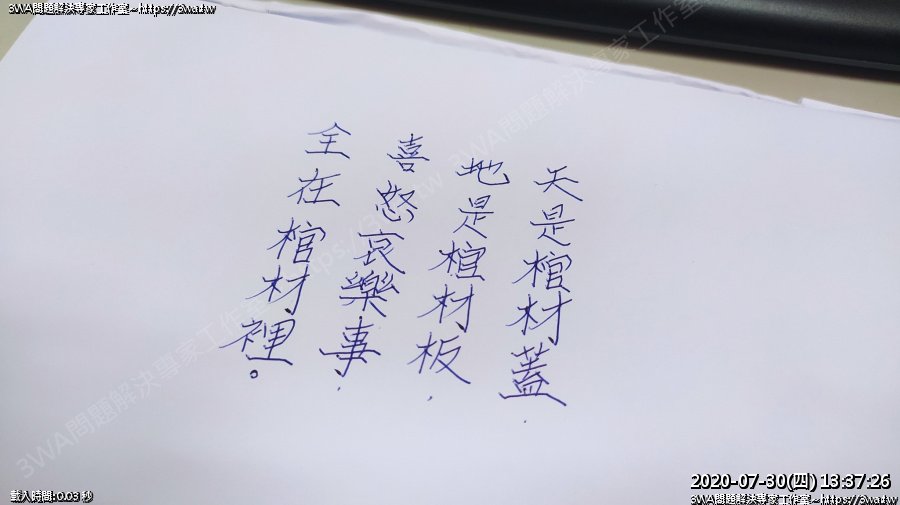 3WA問題解決專家工作室~https://3wa.tw
天是棺材蓋,
地是棺材板,
喜怒哀樂事,
全在棺材裡。
3WA問題解決專家工作室 https://3wa.tw 3WA問題解決專家工作室
載入時間: 0.03 秒
2020-07-30(四) 13:37:26
3WA問題解決專家工作室~https://3wa.tw